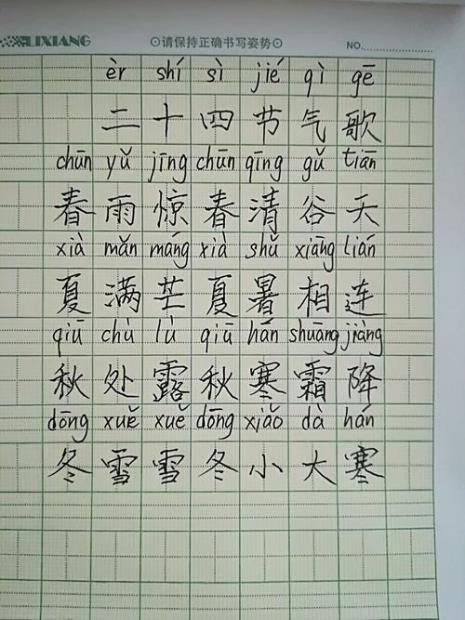 LIXIANG ⊙请保持正确书写姿势⊙ NO.
èr shí sì jié qì gē
二十四节气歌
chūn yǔ jīng chūn qīng gǔ tiān
春雨惊春清谷天
xià mǎn máng xià shǔ xiāng lián
夏满芒夏暑相连
qiū chù lù qiū hán shuāng jiàng
秋处露秋寒霜降
dōng xuě xuě dōng xiǎo dà hán
冬雪雪冬小大寒